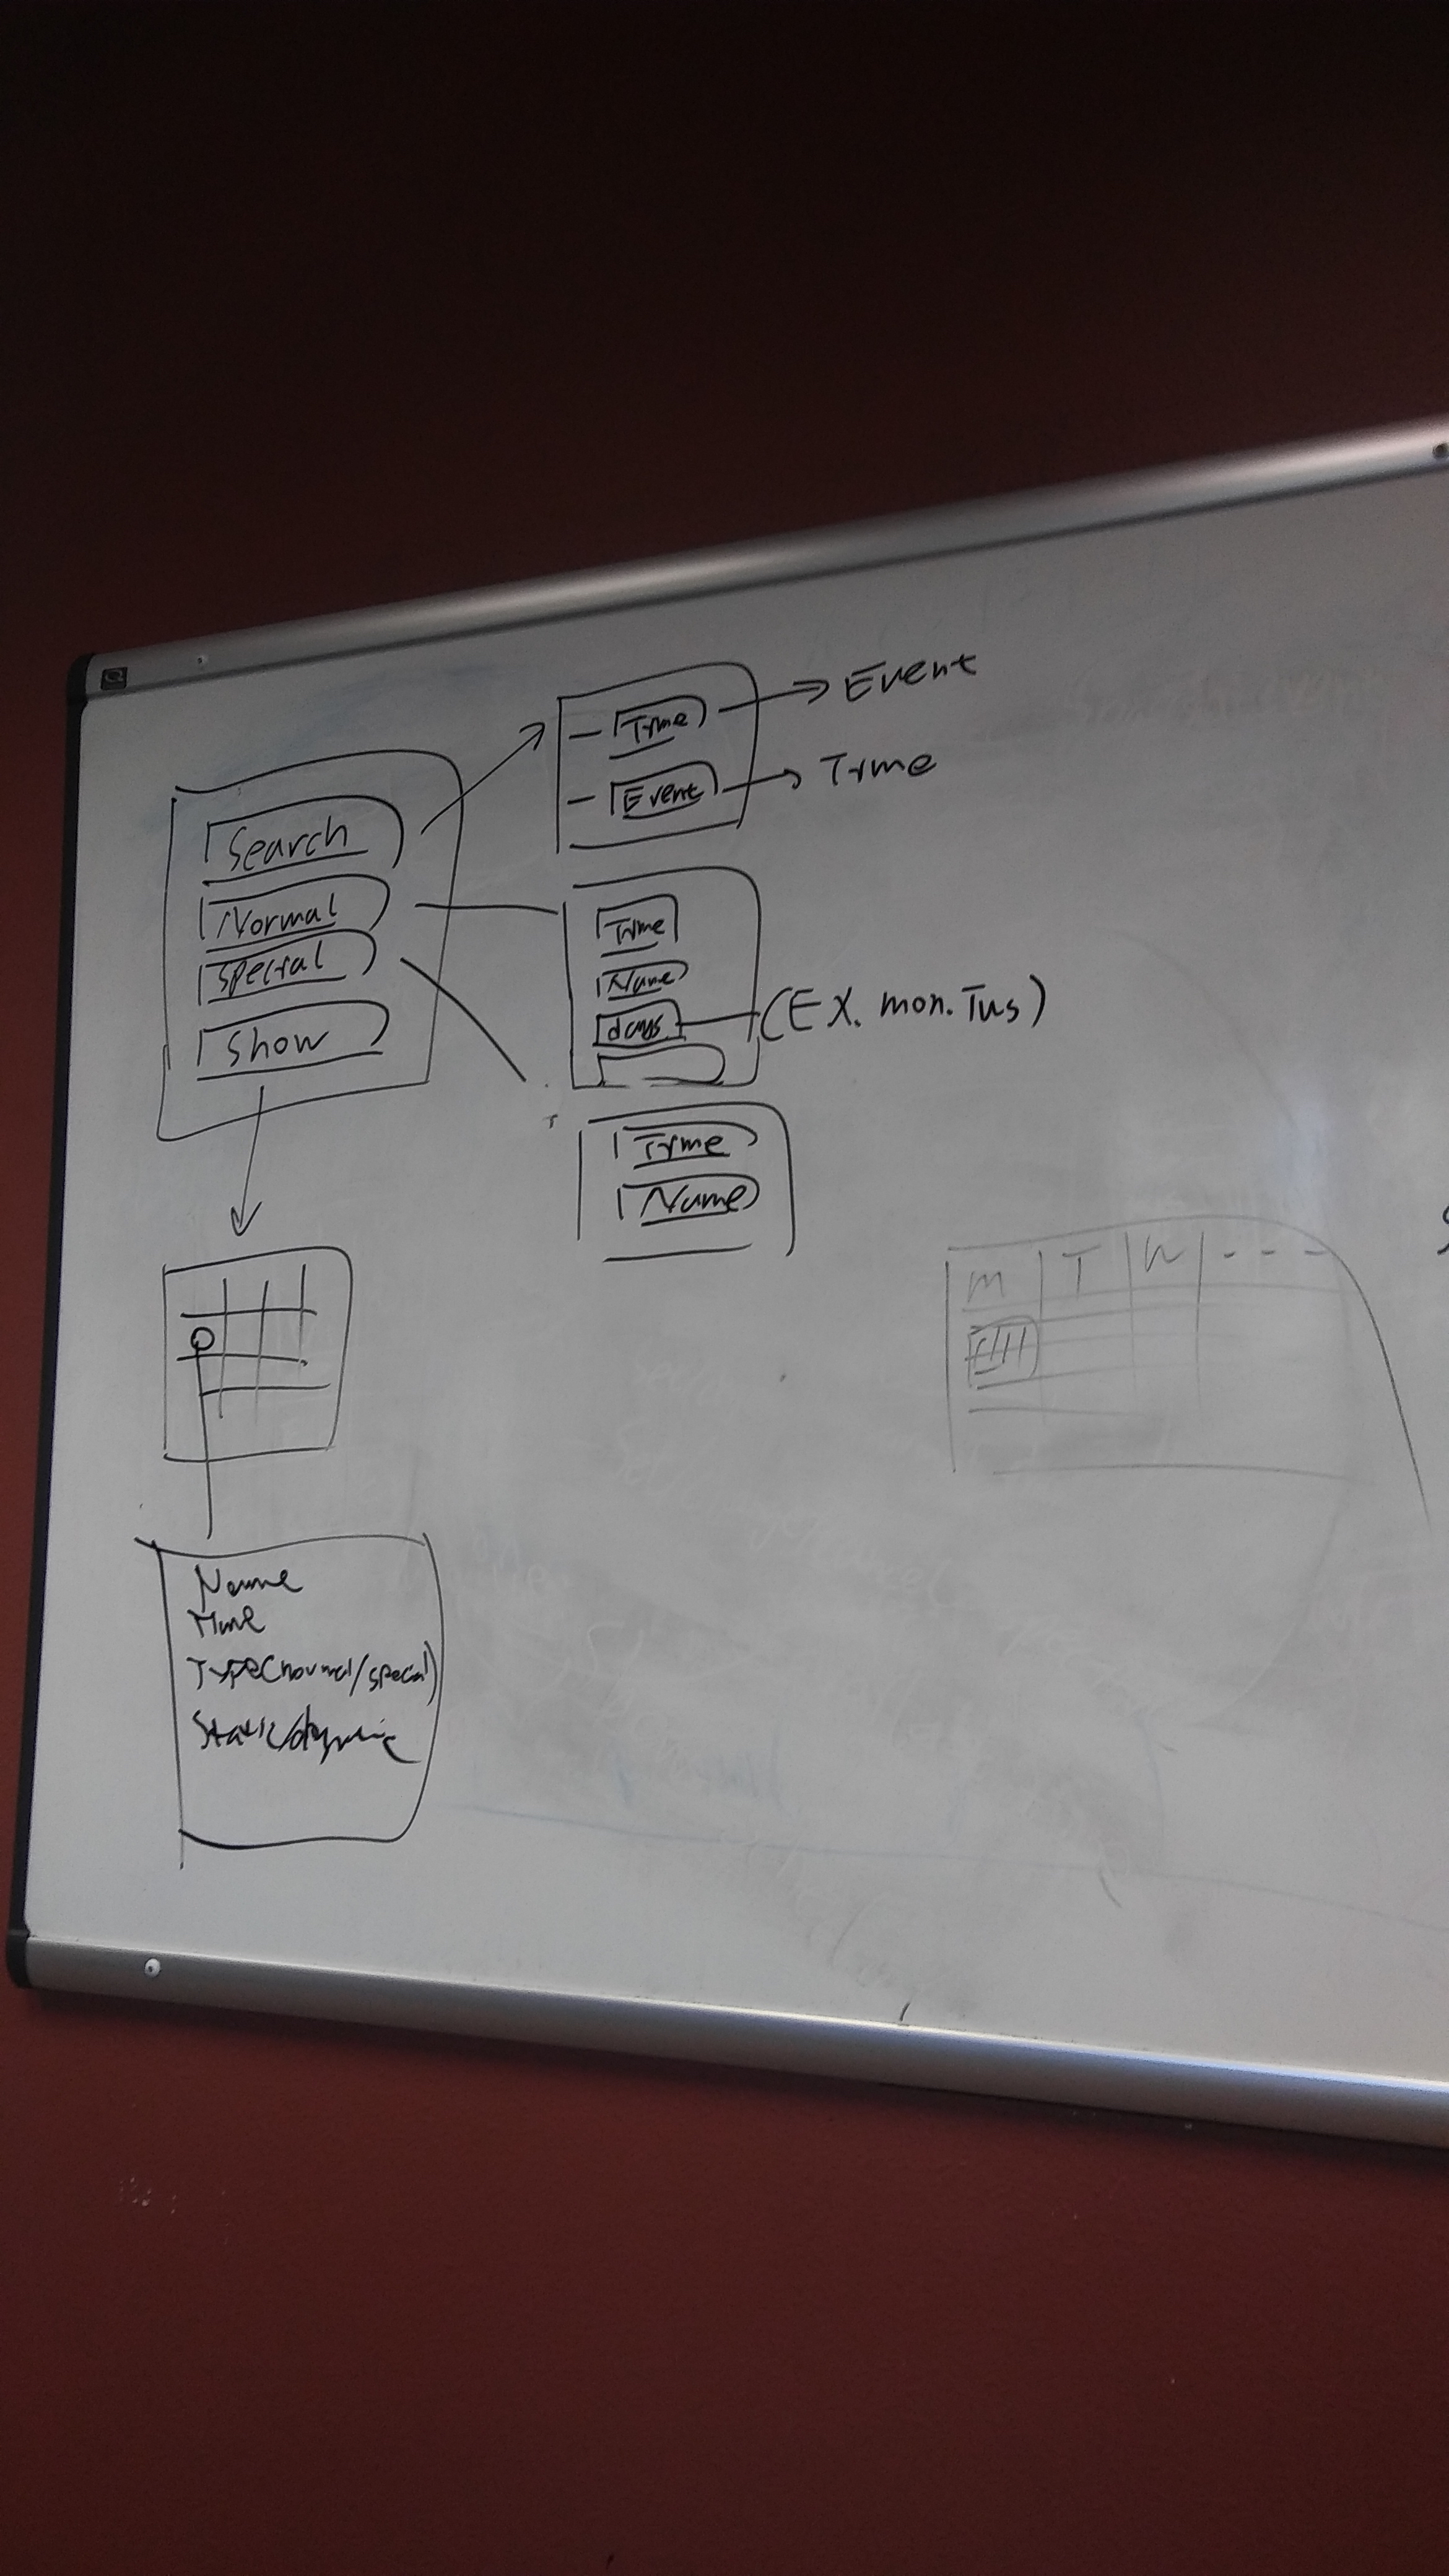 Search
Normal
Special
Show
Time → Event
Event → Time
Time
Name
days
(EX. mon. Tus)
Time
Name
M T W - - -
Name
Time
Type(normal/special)
Static/dynamic